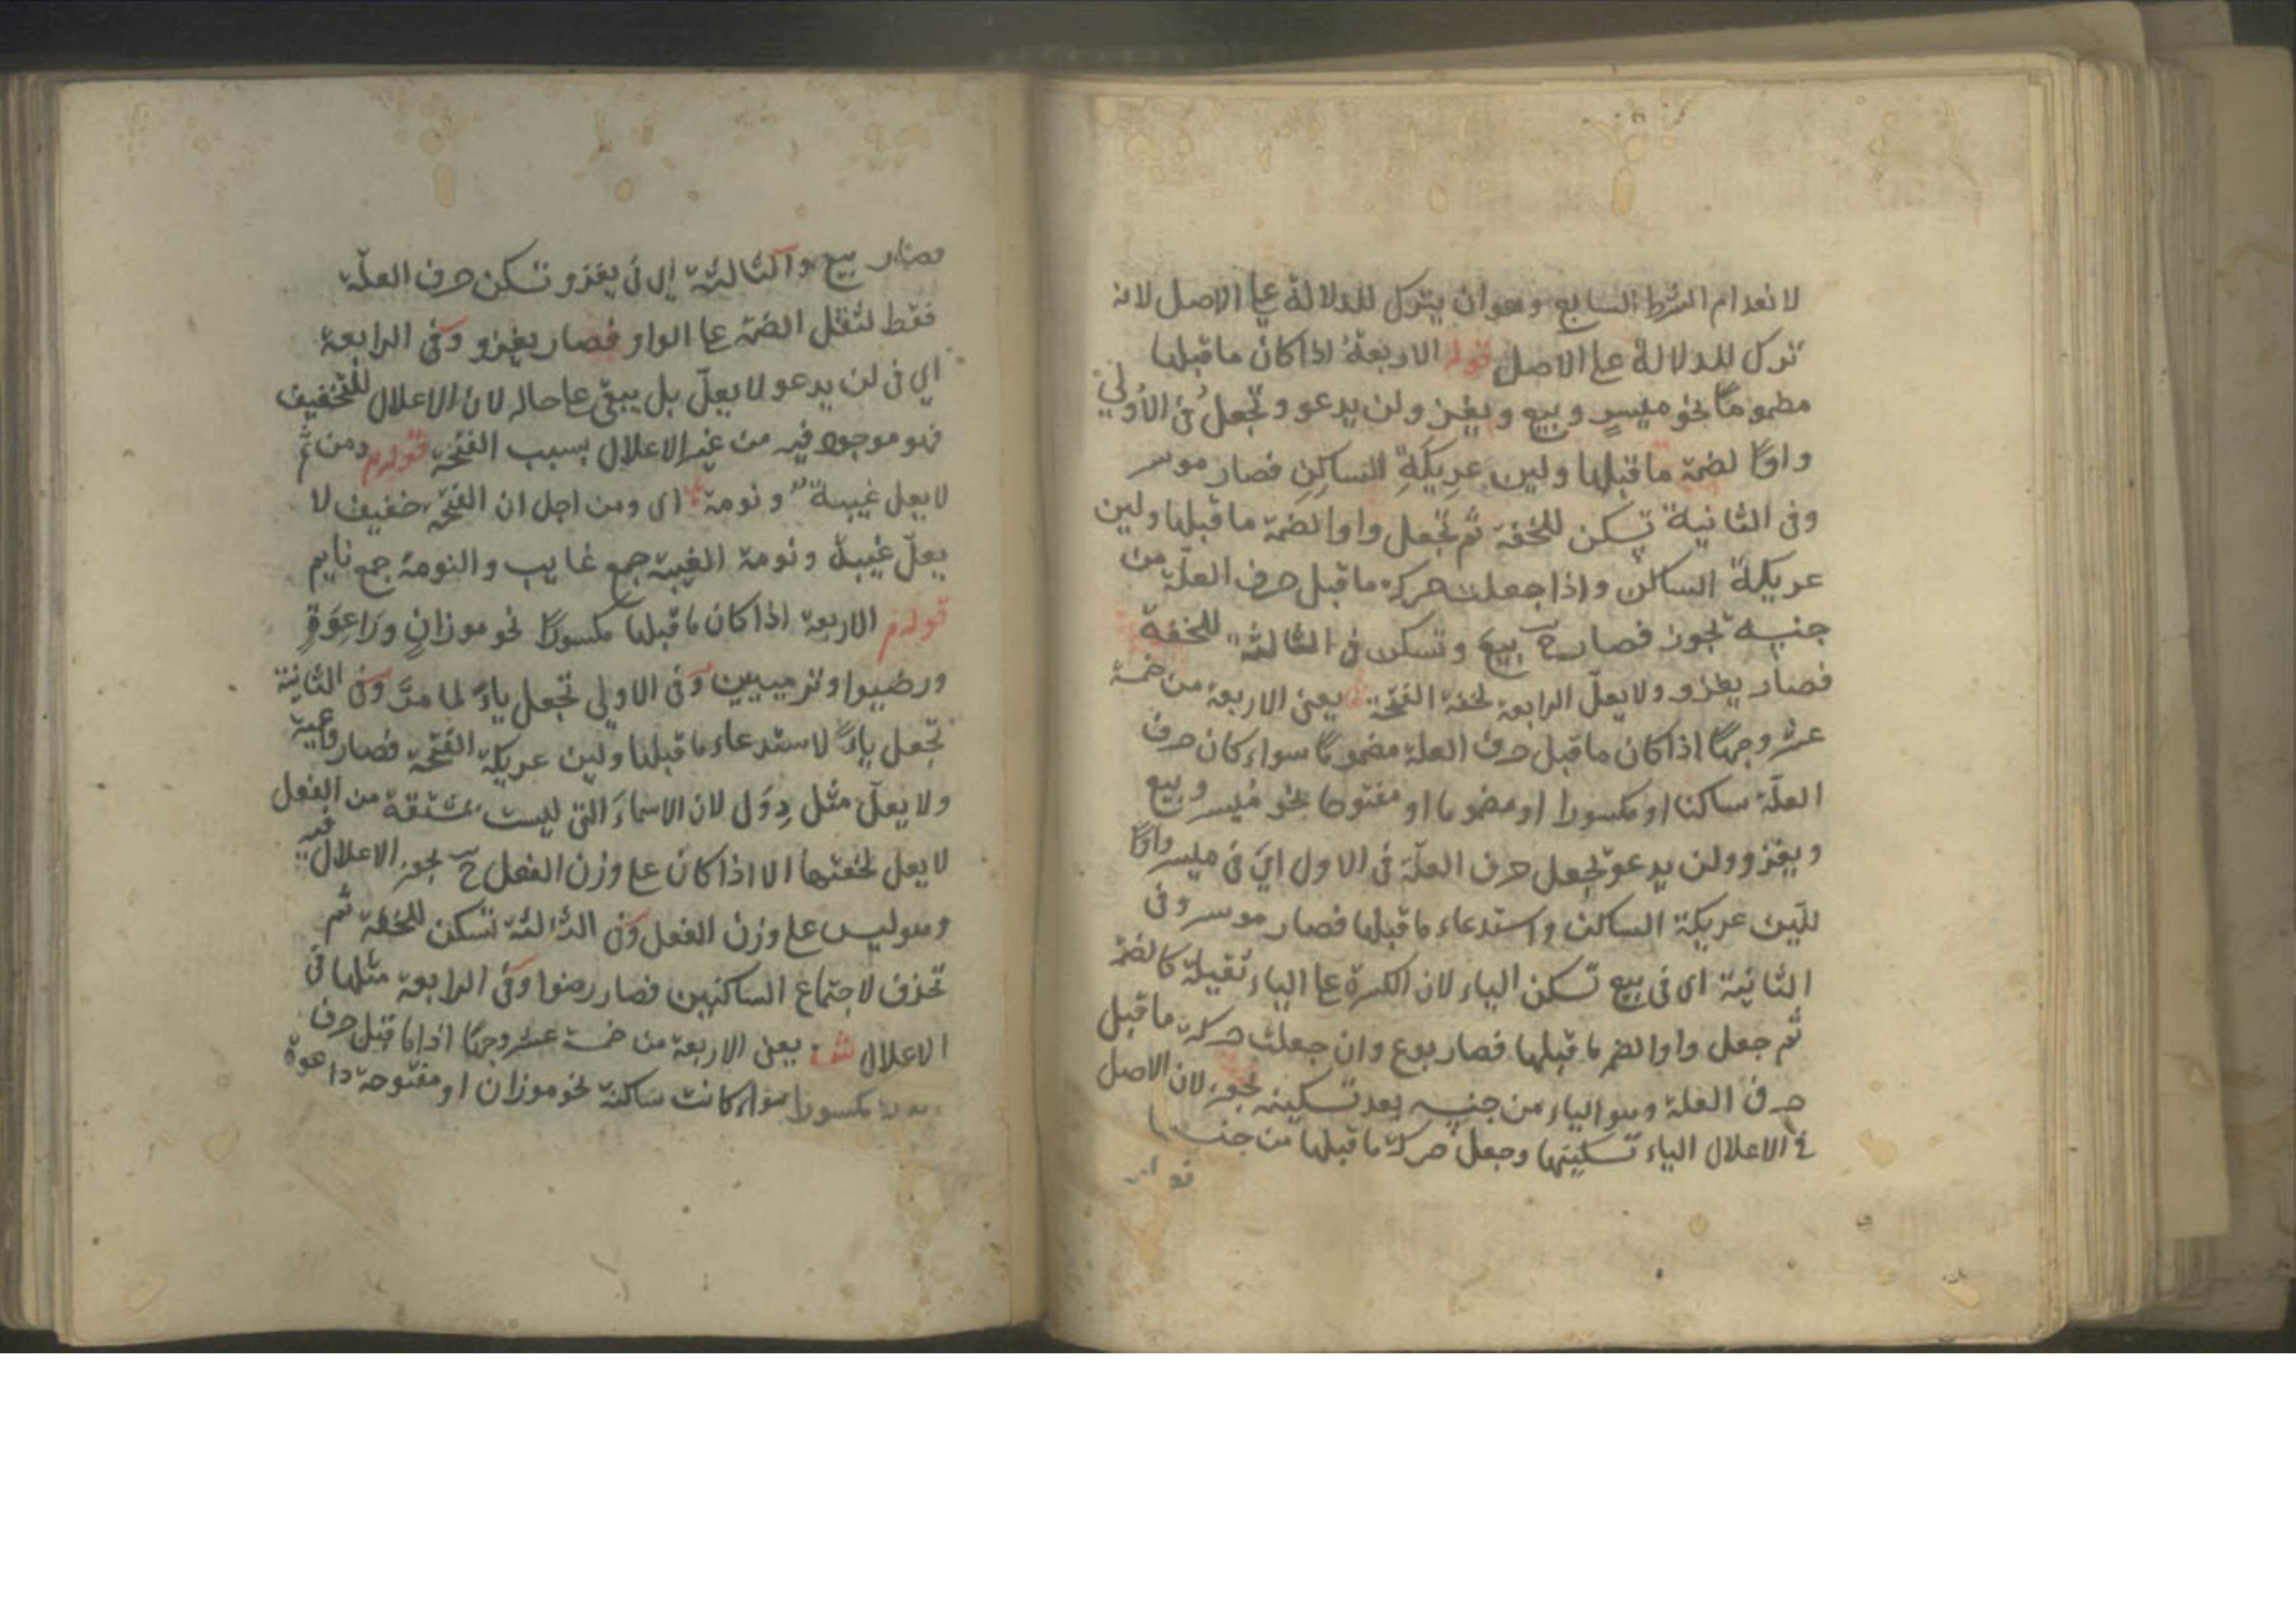 لانعدام الشرط السابع وهو ان يترك للدلالة على الاصل لانه
ترك للدلالة على الاصل قوله الاربعة اذا كان ما قبلها
مضموما نحو ميسر وبيع ويغزو ولن يدعو وتجعل فى الاولى
واوا لضمة ما قبلها ولين عريكة الساكن فصار موسر
وفى الثانية تسكن للخفة ثم تجعل واوا لضمة ما قبلها ولين
عريكة الساكن واذا جعلت حركة ما قبل حرف العلة من
جنسه تجوز فصار ح بيع وتسكن فى الثالثة للخفة
فصار يغزو ولا يعل الرابعة لخفة الفتحة يعنى الاربعة من خمسة
عشر وجها اذا كان ما قبل حرف العلة مضموما سواء كان حرف
العلة ساكنا او مكسورا او مضموما او مفتوحا نحو ميسر وبيع
ويغزو ولن يدعو تجعل حرف العلة فى الاول اي فى ميسر واوا
للين عريكة الساكن واستدعاء ما قبلها فصار موسر وفى
الثانية اى فى بيع تسكن الياء لان الكسرة على الياء ثقيلة كالضم
ثم جعل واوا لضم ما قبلها فصار بوع وان جعلت حركة ما قبل
حرف العلة وهو الياء من جنسه بعد تسكينه تجوز لان الاصل
فى الاعلال الياء تسكينها وجعل حركة ما قبلها من جنسها
وصار بيع والثالثة اى فى يغزو تسكن حرف العلة
فقط لثقل الضمة على الواو فصار يغزو وفى الرابعة
اى فى لن يدعو لا يعل بل يبقى على حاله لان الاعلال للتخفيف
فهو موجود فيه من غير الاعلال بسبب الفتحة قوله م ومن ثم
لا يعل غيبة ونومة اى ومن اجل ان الفتحة خفيف لا
يعل غيبة ونومة الغيبة جمع غايب والنومة جمع نايم
قوله م الاربعة اذا كان ما قبلها مكسورا نحو موزان وداعوة
ورضيوا وترميين وفى الاولى تجعل ياء لما مر وفى الثانية
تجعل ياء لاستدعاء ما قبلها ولين عريكة الفتحة فصار داعية
ولا يعل مثل دول لان الاسماء التى ليست بمشتقة من الفعل
لا يعل لخفتها الا اذا كان على وزن الفعل ح يجوز الاعلال فيه
وهو ليس على وزن الفعل وفى الثالثة تسكن للخفة ثم
تحذف لاجتماع الساكنين فصار رضوا وفى الرابعة مثلها فى
الاعلال ش يعنى الاربعة من خمسة عشر وجها اذا ما قبل حرف
مكسورا سواء كانت ساكنة نحو موزان او مفتوحة داعوة